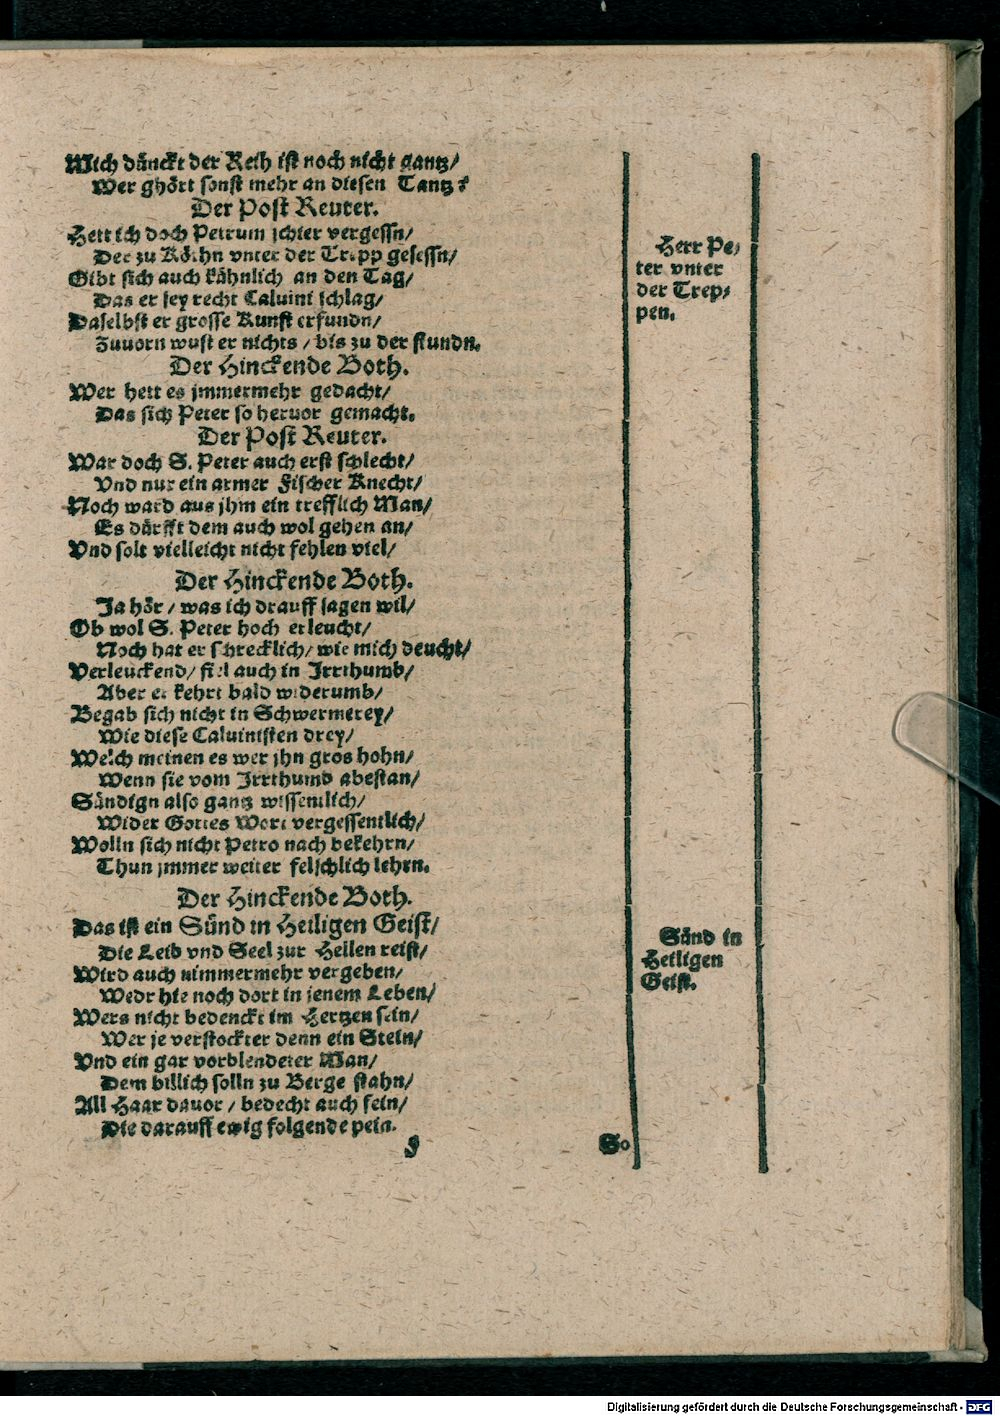 Mich dünckt der Reih ist noch nicht gantz/
Wer ghört sonst mehr an diesen Tantz?
Der Post Reuter.
Hett ich doch Petrum schier vergessn/
Der zu Köthn vnter der Trepp gesessn/
Gibt sich auch kühnlich an den Tag/
Das er sey recht Caluini schlag/
Daselbst er grosse Kunst erfundn/
Zuuorn wust er nichts / bis zu der stundn.
Der Hinckende Both.
Wer hett es jmmermehr gedacht/
Das sich Peter so heruor gemacht.
Der Post Reuter.
War doch S. Peter auch erst schlecht/
Vnd nur ein armer Fischer Knecht/
Noch ward aus jhm ein trefflich Man/
Es dürfft dem auch wol gehen an/
Vnd solt vielleicht nicht fehlen viel/
Der Hinckende Both.
Ja hör / was ich drauff sagen wil/
Ob wol S. Peter hoch erleucht/
Noch hat er schrecklich/ wie mich deucht/
Verleuckend/ fiel auch in Irrthumb/
Aber er kehrt bald widerumb/
Begab sich nicht in Schwermerey/
Wie diese Caluinisten drey/
Welch meinen es wer jhn gros hohn/
Wenn sie vom Irrthumb abestan/
Sündign also gantz wissentlich/
Wider Gottes Wort vergessentlich/
Wolln sich nicht Petro nach bekehrn/
Thun jmmer weiter felschlich lehrn.
Der Hinckende Both.
Das ist ein Sünd in Heiligen Geist/
Die Leib vnd Seel zur Hellen reist/
Wird auch nimmermehr vergeben/
Wedr hie noch dort in jenem Leben/
Wers nicht bedenckt im Hertzen sein/
Wer je verstockter denn ein Stein/
Vnd ein gar vorblendeter Man/
Dem billich solln zu Berge stahn/
All Haar dauor / bedecht auch fein/
Die darauff ewig folgende pein.
So
Herr Pe-
ter vnter
der Trep-
pen.
Sünd in
Heiligen
Geist.
Digitalisierung gefördert durch die Deutsche Forschungsgemeinschaft - DFG